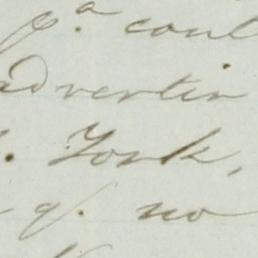 p.ª cont
advertin
. York,
q. no